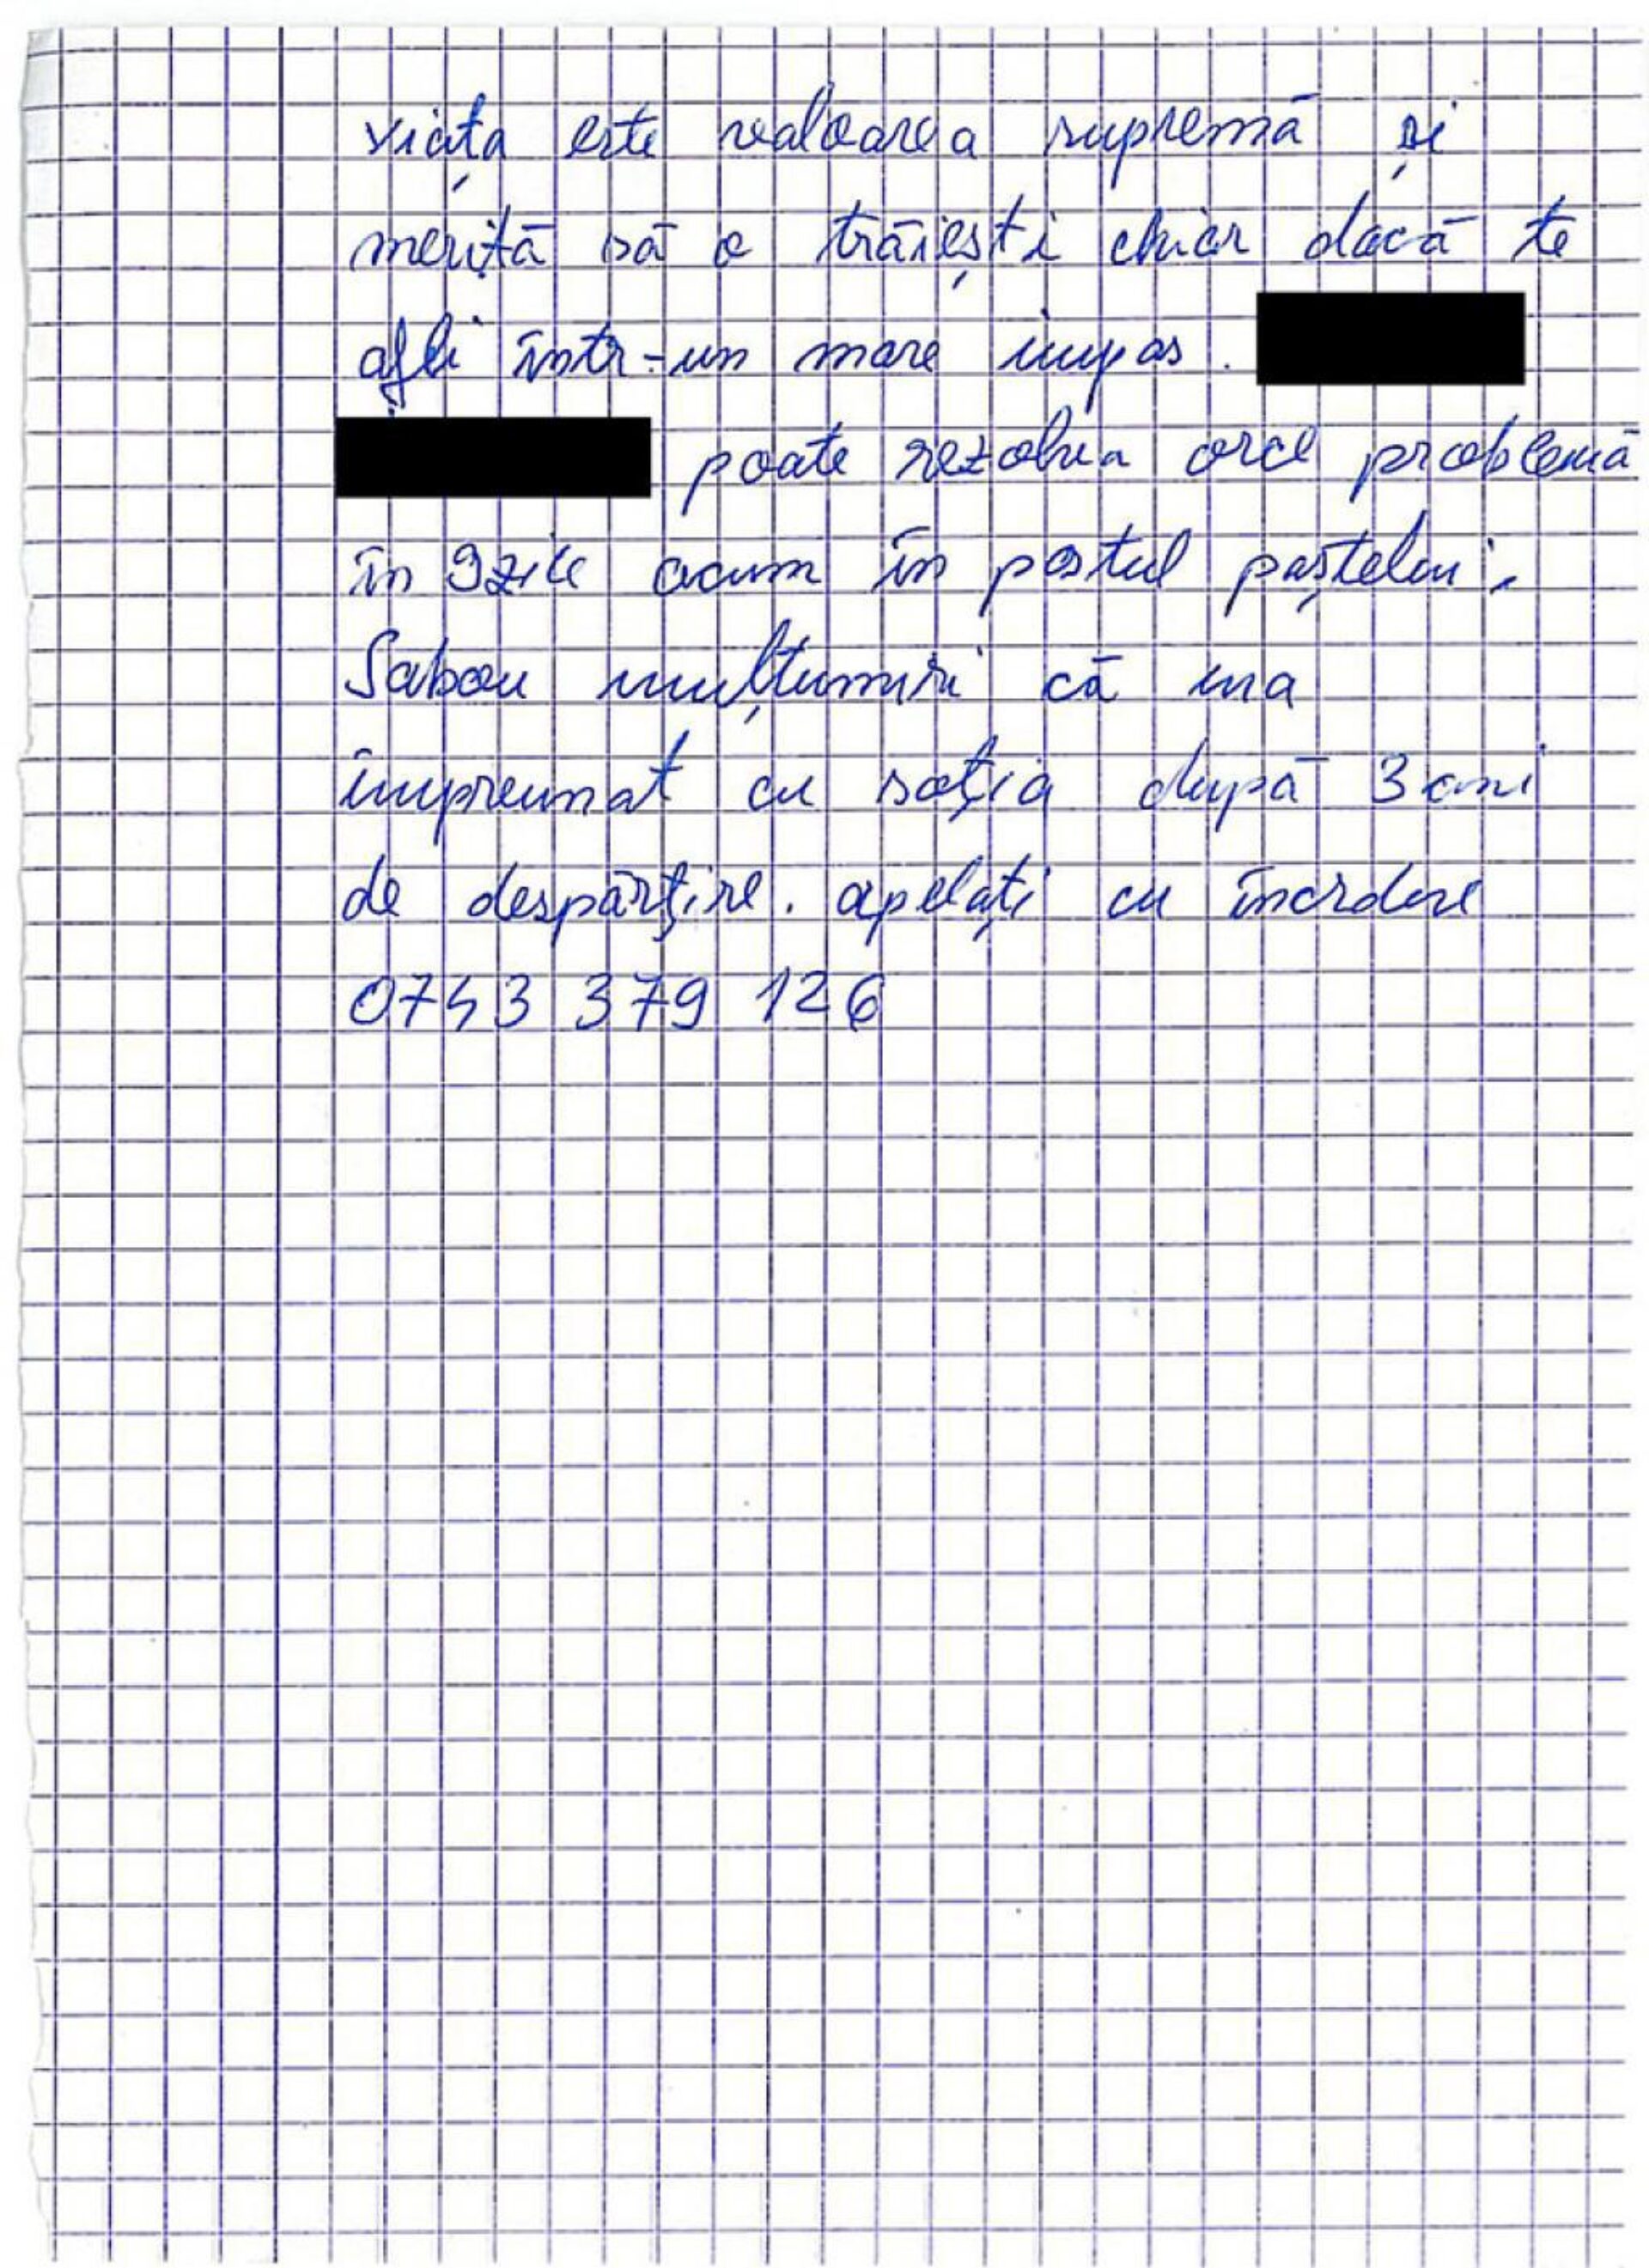 viața este valoarea supremă și
merită să o trăiești chiar dacă te
afli într-un mare impas.
poate rezolva orce problemă
în 9 zile acum în postul paștelui.
Sabau mulțumiri că ma
împreunat cu soția după 3 ani
de despărțire. apelați cu încrdere
0743 379 126